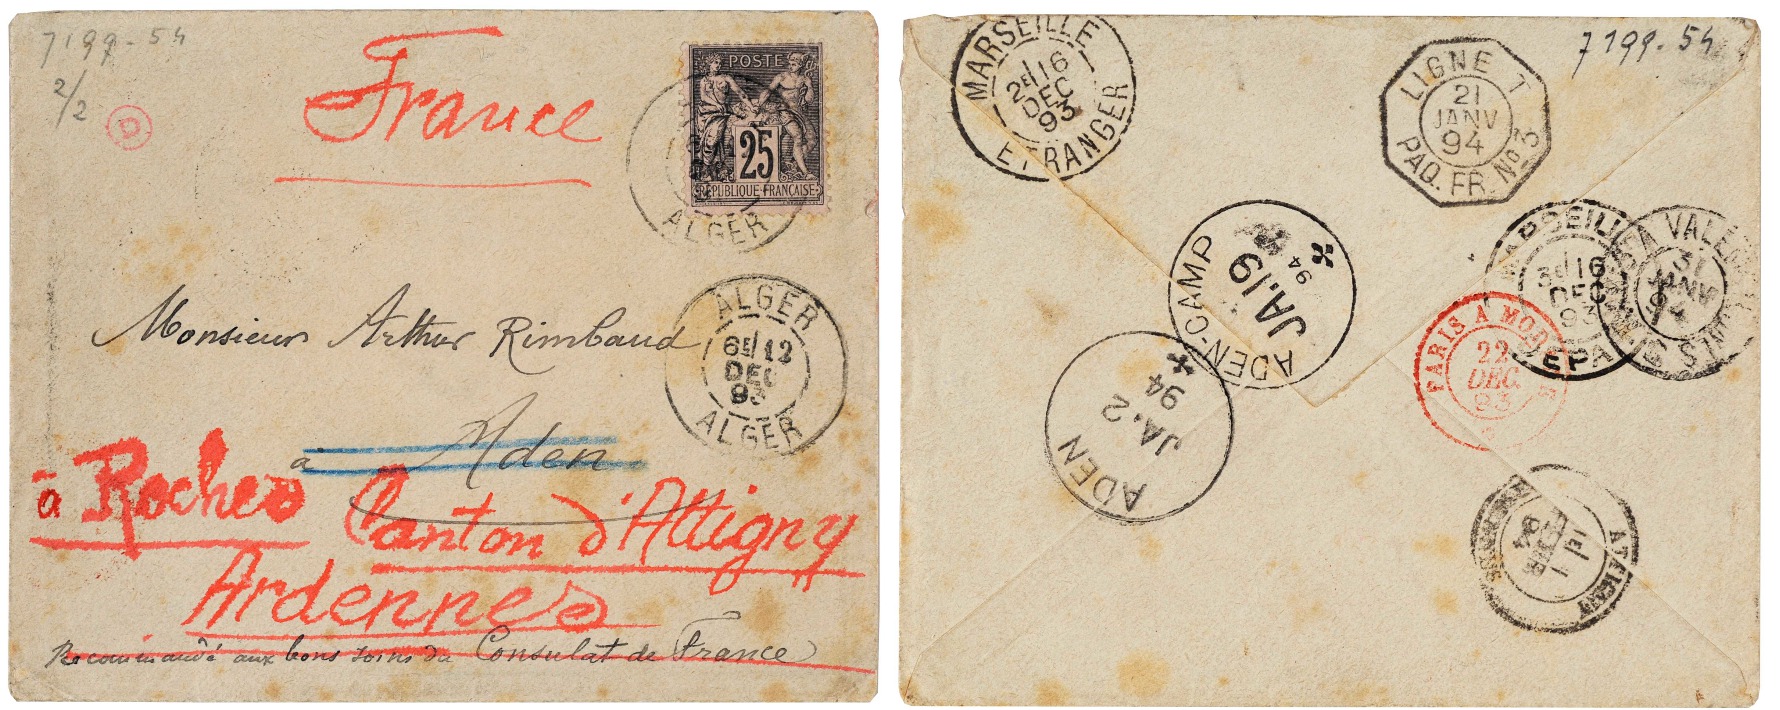 7199-54
2/2
D
France
POSTE
25
RÉPUBLIQUE FRANÇAISE
ALGER
Monsieur Arthur Rimbaud
ALGER
6E 12
DEC
93
ALGER
à Aden
à Roches Canton d'Attigny
Ardennes
Recommandé aux bons soins du Consulat de France
7199-54
MARSEILLE
2E 16
DEC
93
ETRANGER
LIGNE T
21
JANV
94
PAQ. FR. No 3
ADEN-CAMP
JA.19
94
ADEN
JA. 2
94
MARSEILLE
3E 16
DEC
93
DEPART
31
JANV
94
PARIS A MOD
22
DEC.
93
1E 1
FEVR
94